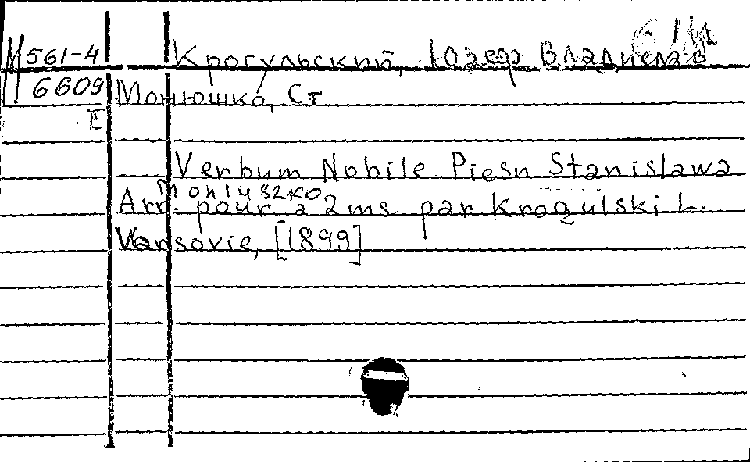 М 561-4 Крогульский, Юзеф Владислав
6609 Монюшко, Ст
E
Verbum Nobile Piesn Stanislawa
Moniuszko
Arr. pour a 2 ms par Krogulski L.
Varsovie, [1899]